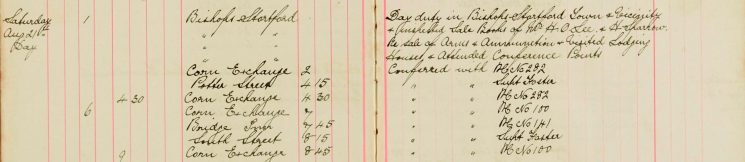 Saturday 1 Bishops Stortford Day duty in Bishops Stortford Town & Vicinity
Aug 21st " & Inspected Sale Books of Mr H. O. Lee & H Sparrow
Day " Re sale of Arms & Ammunition & Visited Lodging
" Houses & Attended Conference Points
Corn Exchange 2 Conferred with PC No 292
Potter Street 4 15 " Supt Foster
4 30 Corn Exchange 4 30 " PC No 282
6 Corn Exchange 7 " PC No 100
Bridge Inn 7 45 " PC No 141
South Street 8 15 " Supt Foster
9 Corn Exchange 8 45 " PC No 100